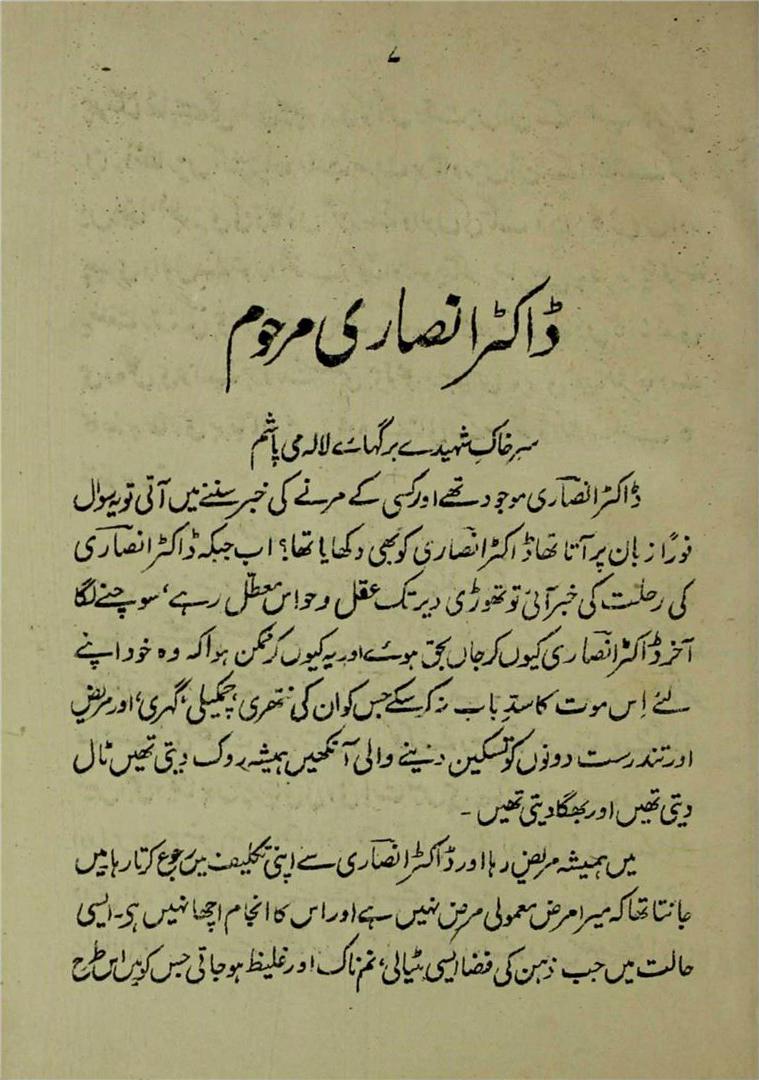 ۷
ڈاکٹر انصاری مرحوم
سرِ خاکِ شہیدے برگہائے لالہ می پاشم
ڈاکٹر انصاری موجود تھے اور کسی کے مرنے کی خبر سننے میں آتی تو یہ سوال
فوراً زبان پر آتا تھا ڈاکٹر انصاری کو بھی دکھایا تھا؟ اب جبکہ ڈاکٹر انصاری
کی رحلت کی خبر آئی تو تھوڑی دیر تک عقل و حواس معطّل رہے، سوچنے لگا
آخر ڈاکٹر انصاری کیوں کر جاں بحق ہوئے اور یہ کیوں کر ممکن ہوا کہ وہ خود اپنے
لئے اِس موت کا سدِّ باب نہ کر سکے جس کو ان کی نتھری، چمکیلی، گہری، اور مریض
اور تندرست دونوں کو تسکین دینے والی آنکھیں ہمیشہ روک دیتی تھیں ٹال
دیتی تھیں اور بھگا دیتی تھیں ۔
میں ہمیشہ مریض رہا اور ڈاکٹر انصاری سے اپنی تکلیف میں رجوع کرتا رہا میں
جانتا تھا کہ میرا مرض معمولی مرض نہیں ہے اور اس کا انجام اچھا نہیں ہی۔ ایسی
حالت میں جب ذہن کی فضا ایسی مٹیالی، نم ناک اور غلیظ ہو جاتی جس کو میں اس طرح